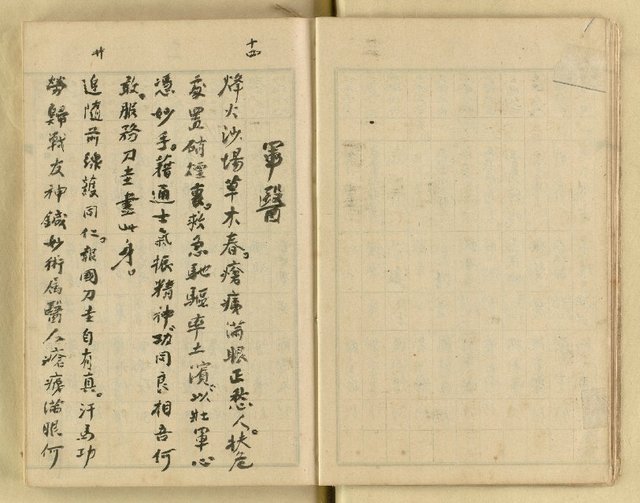 十四
軍醫
烽火沙場草木春。瘡痍滿眼正愁人。扶危
處置硝煙裏。救急馳驅率土濱。以壯軍心
憑妙手。藉通士氣振精神。功同良相吾何
敢。服務刀圭盡此身。
廿
追隨前線護同仁。報國刀圭自有真。汗馬功
勞歸戰友神鍼妙術屬醫人瘡痍滿眼何